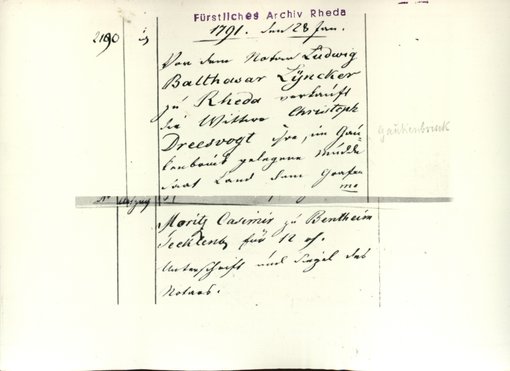 Fürstliches Archiv Rheda
2190
1791. den 28 Jan.
Vor dem Notar Ludwig
Balthasar Lyncker
zu Rheda verkauft
die Wittwe Christoph
Dreesvogt ihre, im Gau-
kenbrink gelegene
Land dem Grafen
Gaukenbrink
Moritz Casimir zu Bentheim
Tecklenb. für 12
Unterschrift und Siegel des
Notars.